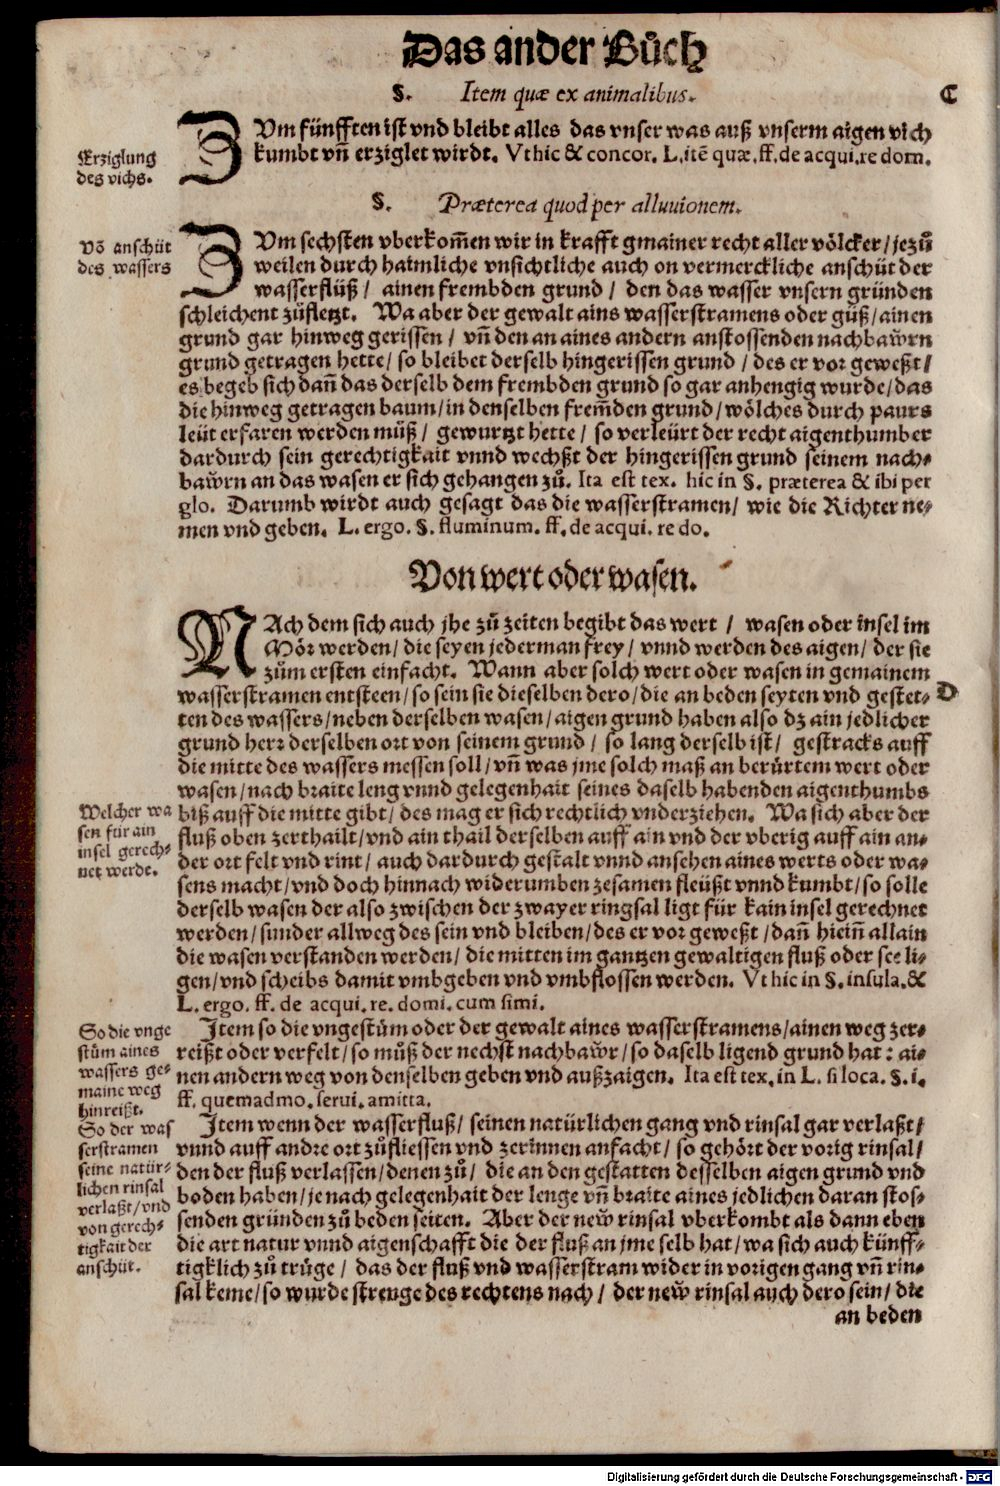 Das ander Bůch
§. Item quæ ex animalibus.
C
ZUm fünfften ist vnd bleibt alles das vnser was auß vnserm aigen vich
kumbt vn̄ erziglet wirdt. Vt hic & concor. L. itē quæ. ff. de acqui. re dom.
Erziglung
des vichs.
§. Præterea quod per alluuionem.
Vō anschüt
des wassers
ZUm sechsten vberkom̄en wir in krafft gmainer recht aller völcker / jezů
weilen durch haimliche vnsichtliche auch on vermerckliche anschüt der
wasserflüß / ainen frembden grund / den das wasser vnsern gründen
schleichent zůfletzt. Wa aber der gewalt ains wasserstramens oder güß / ainen
grund gar hinweg gerissen / vn̄ den an aines andern anstossenden nachbaw̆rn
grund getragen hette / so bleibet derselb hingerissen grund / des er vor geweßt /
es begeb sich dan̄ das derselb dem frembden grund so gar anhengig wurde / das
die hinweg getragen baum / in denselben frem̄den grund / wölches durch paurs
leüt erfaren werden můß / gewurtzt hette / so verleürt der recht aigenthumber
dardurch sein gerechtigkait vnnd wechßt der hingerissen grund seinem nach-
baw̆rn an das wasen er sich gehangen zů. Ita est tex. hic in §. præterea & ibi per
glo. Darumb wirdt auch gesagt das die wasserstramen / wie die Richter ne-
men vnd geben. L. ergo. §. fluminum. ff. de acqui. re do.
Von wert oder wasen.
NAch dem sich auch jhe zů zeiten begibt das wert / wasen oder insel im
Mör werden / die seyen jederman frey / vnnd werden des aigen / der sie
zům ersten einfacht. Wann aber solch wert oder wasen in gemainem
wasserstramen entsteen / so sein sie dieselben dero / die an beden seyten vnd gestet-
D
ten des wassers / neben derselben wasen / aigen grund haben also dz ain jedlicher
grund herr derselben ort von seinem grund / so lang derselb ist / gestracks auff
die mitte des wassers messen soll / vn̄ was jme solch maß an berürtem wert oder
wasen / nach braite leng vnnd gelegenhait seines daselb habenden aigenthumbs
biß auff die mitte gibt / des mag er sich rechtlich vnderziehen. Wa sich aber der
fluß oben zerthailt / vnd ain thail derselben auff ain vnd der vberig auff ain an-
der ort felt vnd rint / auch dardurch gestalt vnnd ansehen aines werts oder wa-
sens macht / vnd doch hinnach widerumben zesamen fleüßt vnnd kumbt / so solle
derselb wasen der also zwischen der zwayer ringsal ligt für kain insel gerechnet
werden / sunder allweg des sein vnd bleiben / des er vor geweßt / dan̄ hiein̄ allain
die wasen verstanden werden / die mitten im gantzen gewaltigen fluß oder see li-
gen / vnd scheibs damit vmbgeben vnd vmbflossen werden. Vt hic in §. insula. &
L. ergo. ff. de acqui. re. domi. cum simi.
Welcher wa
sen für ain
insel gerech-
net werde.
So die vnge
stüm aines
wassers ge-
maine weg
hinreißt.
Item so die vngestüm oder der gewalt aines wasserstramens / ainen weg zer-
reißt oder verfelt / so můß der nechst nachbaw̆r / so daselb ligend grund hat : ai-
nen andern weg von denselben geben vnd außzaigen. Ita est tex. in L. si loca. §. i.
ff. quemadmo. serui. amitta.
So der was
serstramen
seine natür-
lichen rinsal
verlaßt / vnd
von gerech-
tigkait der
anschüt.
Item wenn der wasserfluß / seinen natürlichen gang vnd rinsal gar verlaßt /
vnnd auff andre ort zůfliessen vnd zerinnen anfacht / so gehört der vorig rinsal /
den der fluß verlassen / denen zů / die an den gestatten desselben aigen grund vnd
boden haben / je nach gelegenhait der lenge vn̄ braite aines jedlichen daran stos-
senden gründen zů beden seiten. Aber der new̆ rinsal vberkombt als dann eben
die art natur vnnd aigenschafft die der fluß an jme selb hat / wa sich auch künff-
tigklich zů trůge / das der fluß vnd wasserstram wider in vorigen gang vn̄ rin-
sal keme / so wurde strenge des rechtens nach / der new̆ rinsal auch dero sein / die
an beden
Digitalisierung gefördert durch die Deutsche Forschungsgemeinschaft - DFG